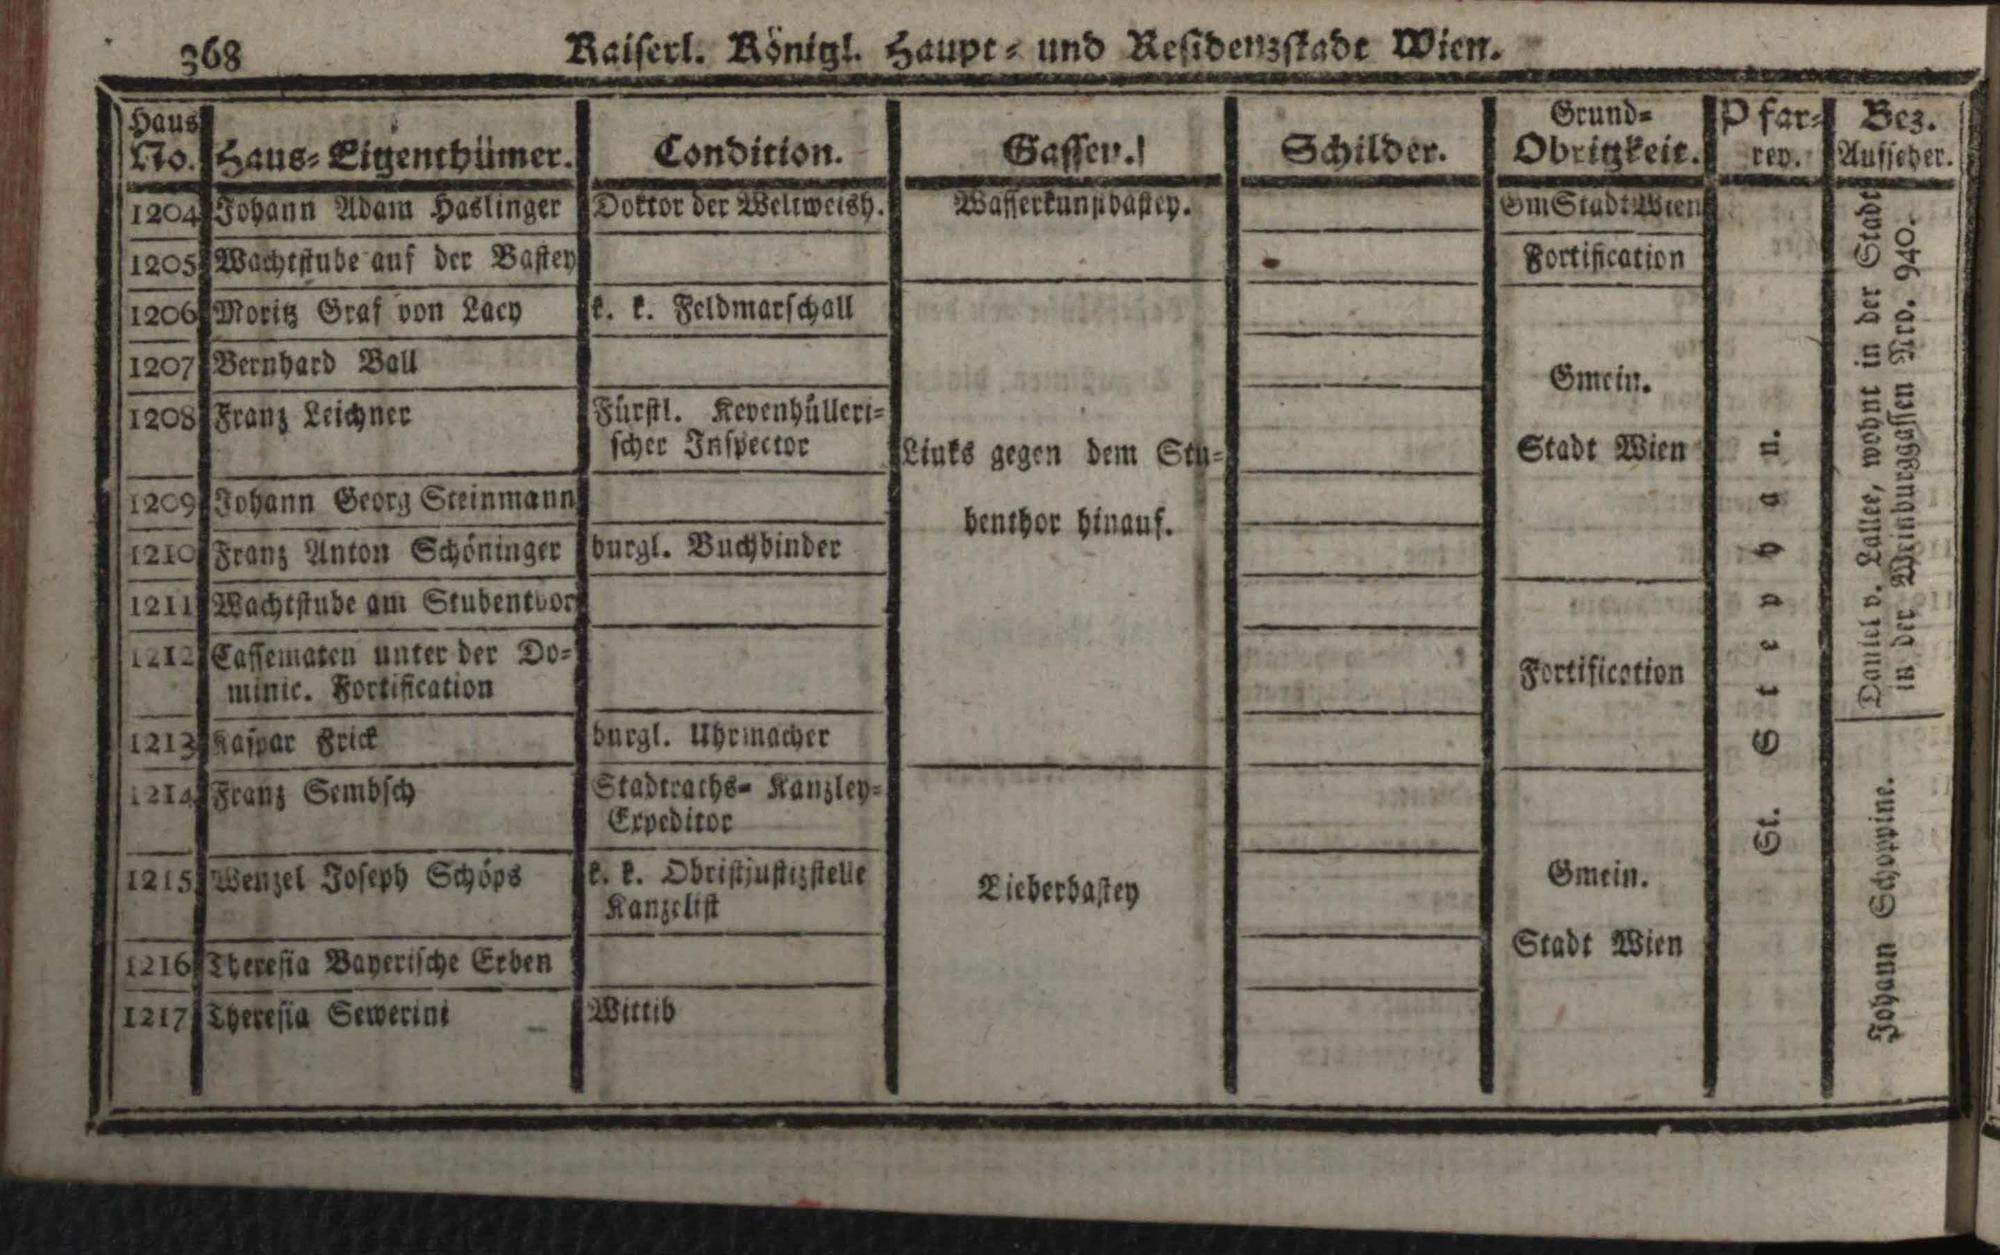 368 Kaiserl. Königl. Haupt- und Residenzstadt Wien.
Haus No. Haus-Eigenthümer. Condition. Gassen. Schilder. Grund-Obrigkeit. Pfar-rey. Bez. Aufseher.
1204 Johann Adam Haslinger Doktor der Weltweish. Wasserkunstbastey. GmStadtWien
1205 Wachtstube auf der Bastey Fortification
1206 Moritz Graf von Lacy k. k. Feldmarschall
1207 Bernhard Ball
Gmein.
1208 Franz Leichner Fürstl. Kevenhülleri-
scher Inspector
Links gegen dem Stu- Stadt Wien
1209 Johann Georg Steinmann
benthor hinauf.
1210 Franz Anton Schöninger burgl. Buchbinder
1211 Wachtstube am Stubenthor
1212 Cassematen unter der Do-
minic. Fortification Fortification
1213 Kaspar Frick burgl. Uhrmacher
1214 Franz Sembsch Stadtraths-Kanzley-
Expeditor
1215 Wenzel Joseph Schöps k. k. Obristjustizstelle Gmein.
Kanzelist Bieberbastey
Stadt Wien
1216 Theresia Bayerische Erben
1217 Theresia Sewerini Wittib
St. Stephan.
Daniel v. Lallee, wohnt in der Stadt
in der Weinburggassen Nro. 940.
Johann Schoppine.